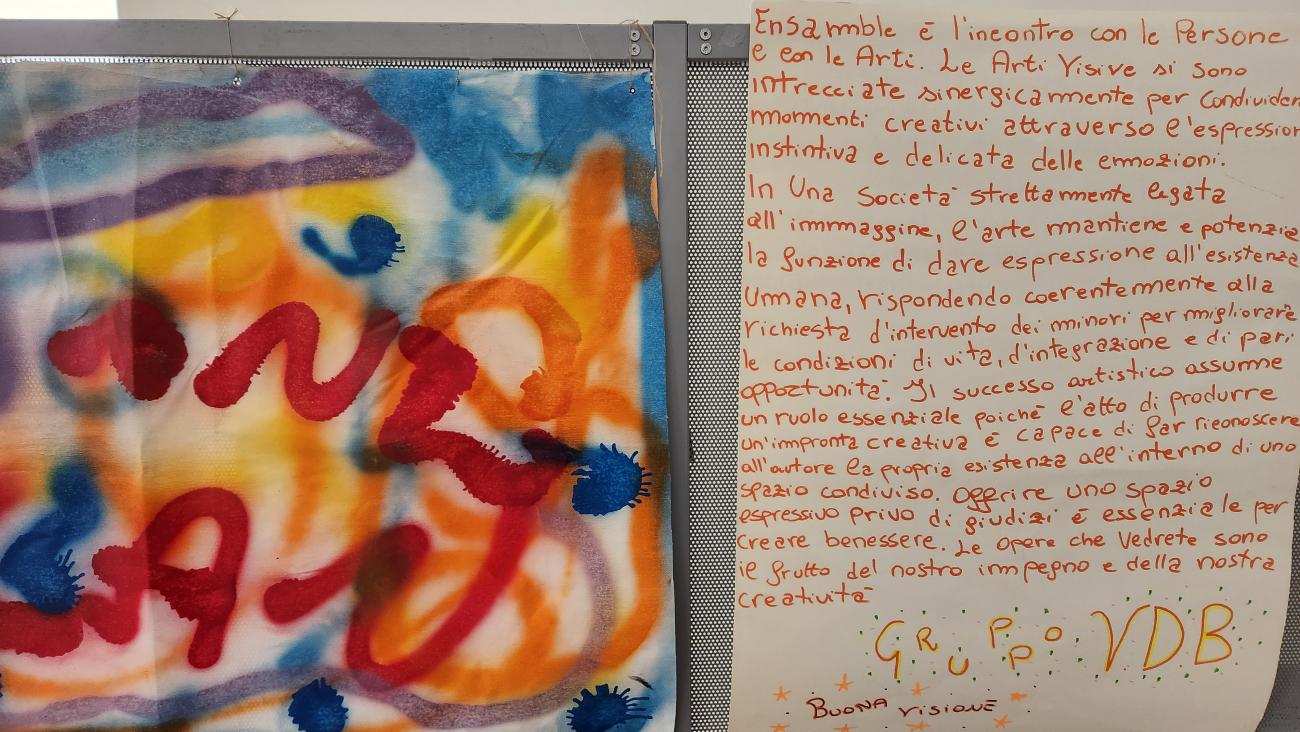 Ensamble è l'incontro con le Persone
e con le Arti. Le Arti Visive si sono
intrecciate sinergicamente per Condivider
momenti creativi attraverso l'espression
instintiva e delicata delle emozioni.
In Una Società strettamente legata
all'immaggine, l'arte mantiene e potenzia
la funzione di dare espressione all'esistenza
Umana, rispondendo coerentemente alla
richiesta d'intervento dei minori per migliorare
le condizioni di vita, d'integrazione e di pari
opportunità. Il successo artistico assume
un ruolo essenziale poichè l'atto di produrre
un'impronta creativa è capace di far riconoscere
all'autore la propria esistenza all'interno di uno
spazio condiviso. Offrire uno spazio
espressivo privo di giudizi è essenziale per
creare benessere. Le opere che Vedrete sono
il frutto del nostro impegno e della nostra
creatività
GRUPPO VDB
BUONA VISIONE